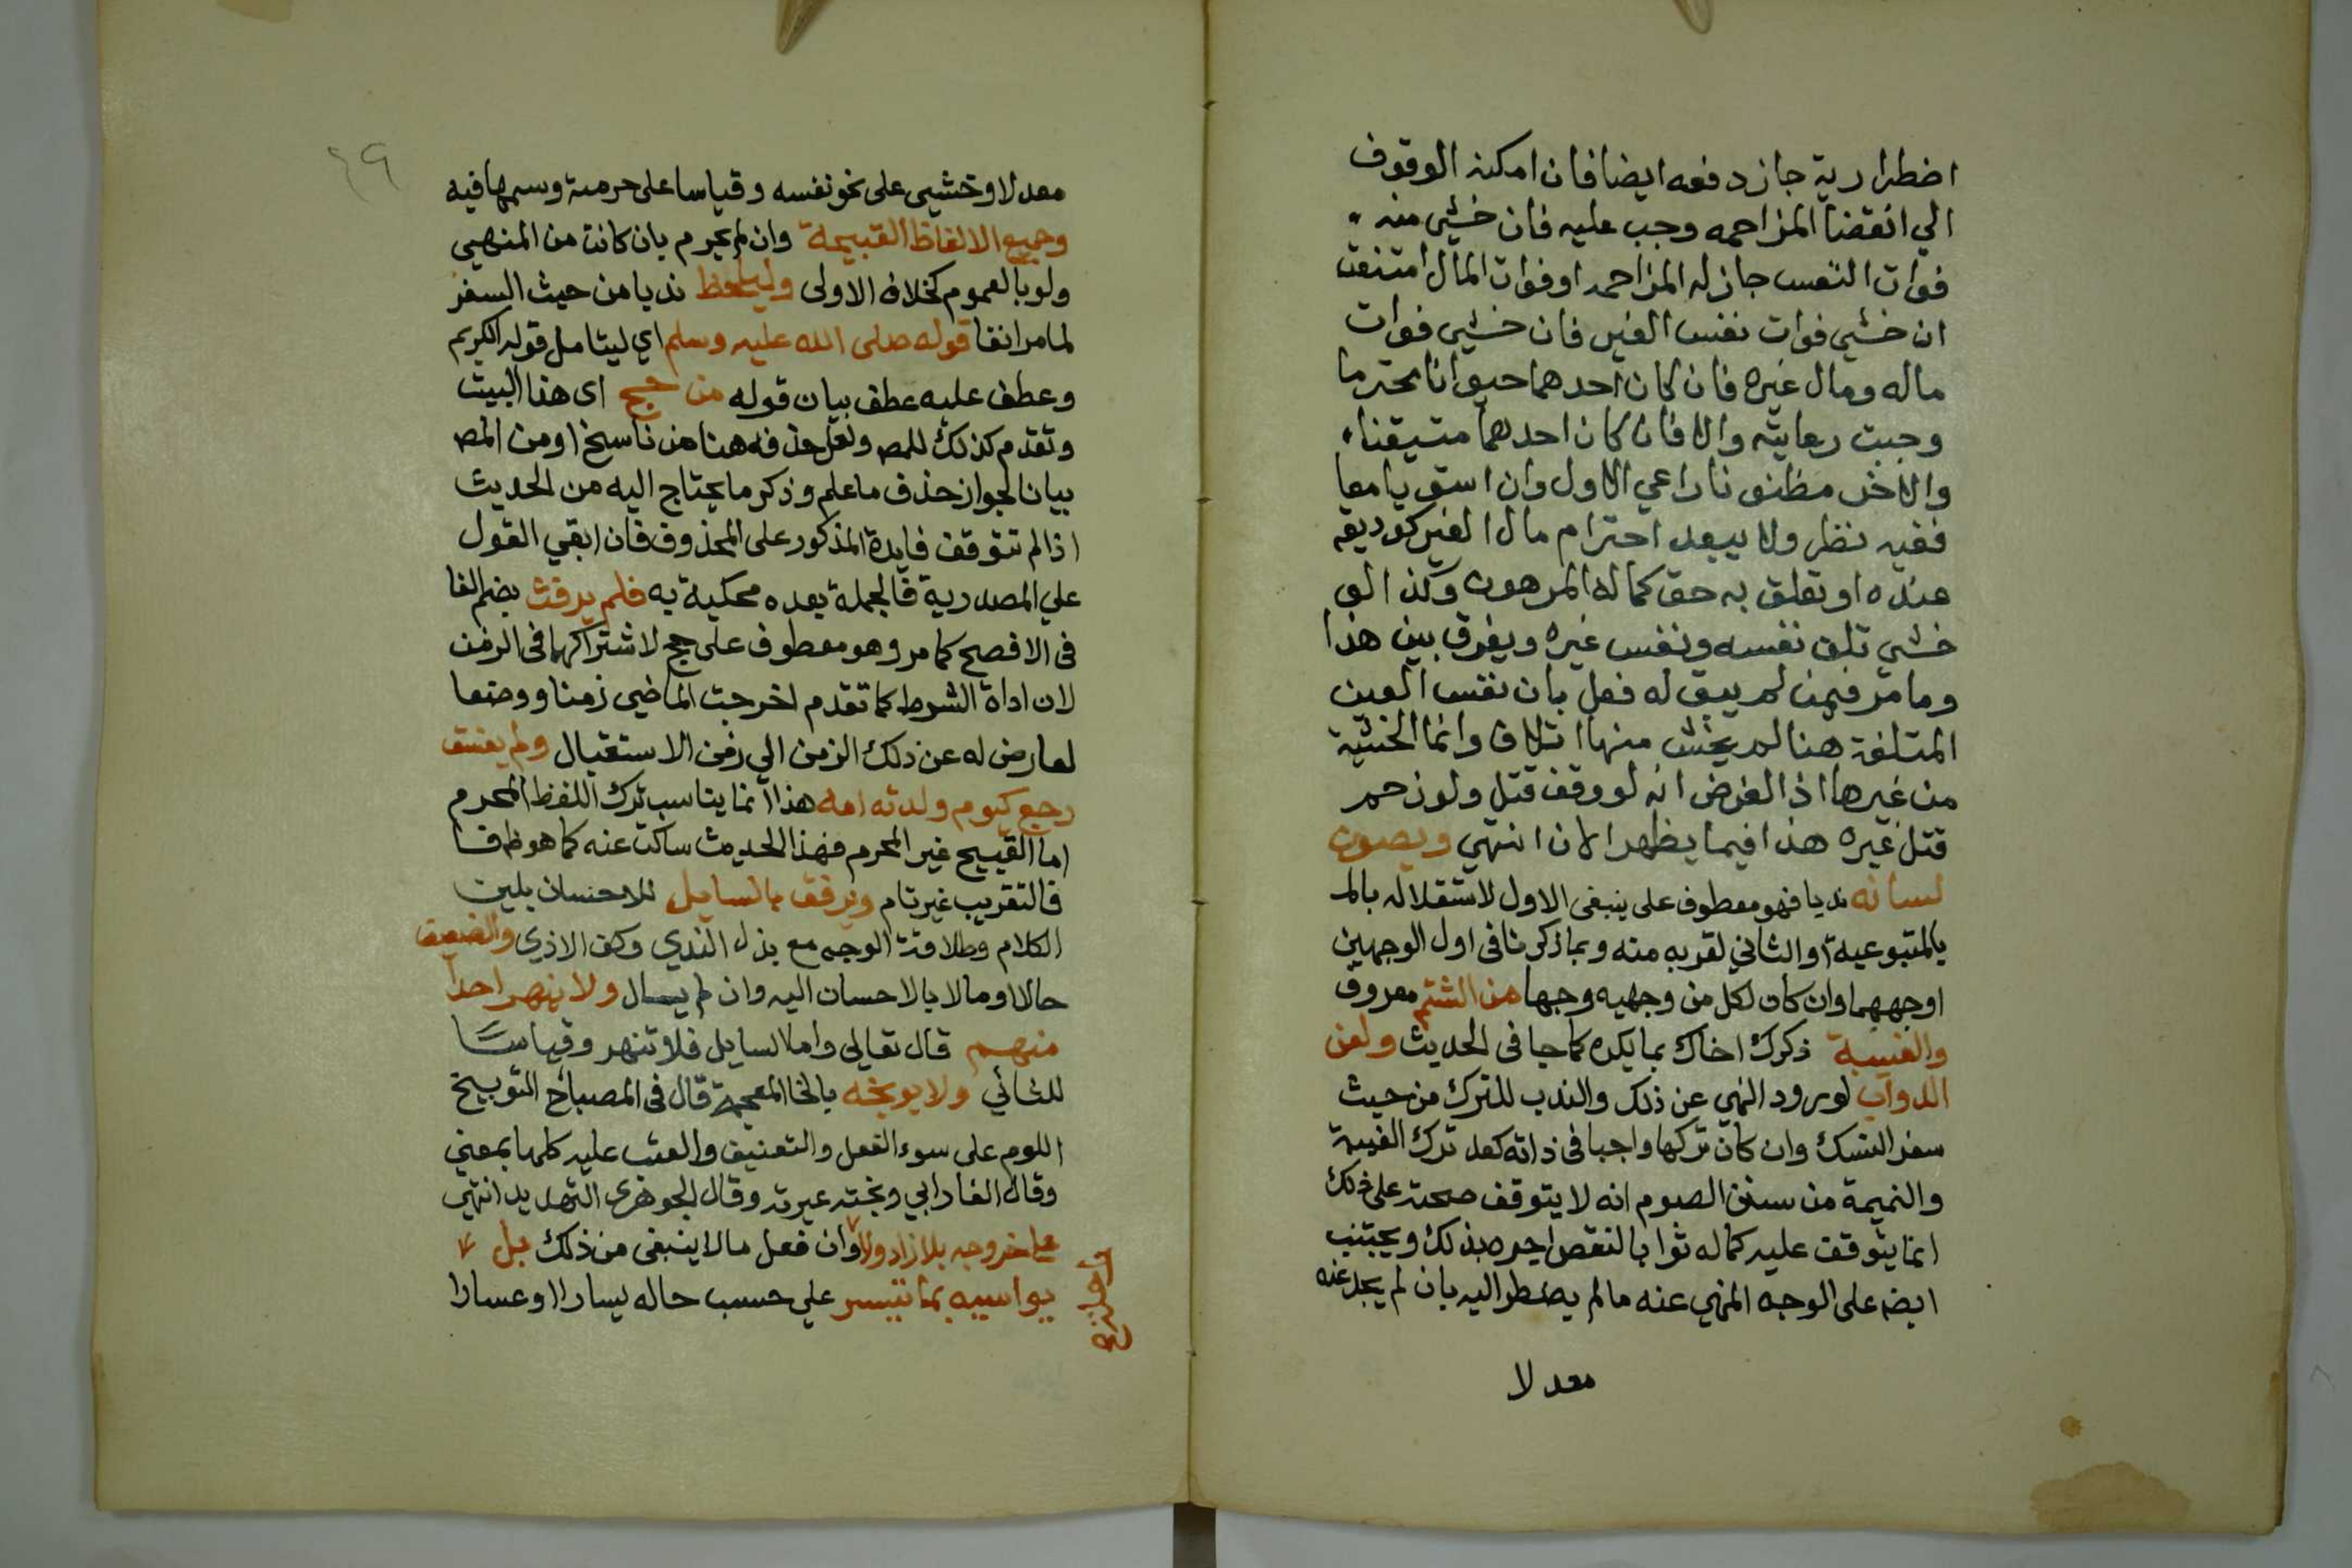 اضطرارية جاز دفعه ايضا فان امكنه الوقوف
الي انقضا المزاحمه وجب عليه فان خشي منه
فوات النفس جاز له المزاحمه او فوات المال امتنعت
ان خشي فوات نفس الغير فان خشي فوات
ماله ومال غيره فان كان احدهما حيوانا محترما
وجبت رعايته والا فان كان احدهما متيقنا
والاخر مظنونا راعي الاول وان استويا معا
ففيه نظر ولا يبعد احترام مال الغير كوديعه
عنده او تعلق به حق كماله المرهون وكذا لو
خشي تلف نفسه ونفس غيره ويفرق بين هذا
وما مر فيمن لم يبق له فعل بان نفس العين
المتلفة هنا لم يخش منها اتلاف وانما الخشية
من غيرها اذ الفرض انه لو وقف قتل ولو زحم
قتل غيره هذا فيما يظهر الان انتهي ويصون
لسانه ندبا فهو معطوف على ينبغى الاول لاستقلاله بالمـ
بالمتبوعية او الثاني لقربه منه وبما ذكرنا فى اول الوجهين
اوجههما وان كان لكل من وجهيه وجها من الشتم معروف
والغيبة ذكرك اخاك بما يكره كما جا فى الحديث ولعن
الدواب لورود النهي عن ذلك والندب للترك من حيث
سفر النسك وان كان تركها واجبا فى ذاته كعد ترك الغيبة
والنميمة من سنن الصوم انه لا يتوقف صحته على ذلك
انما يتوقف عليه كماله ثوابا لنقص اجره بذلك ويجتنب
ايضا على الوجه المنهي عنه مالم يضطر اليه بان لم يجد عنه
معدلا
٤٩
معدلا او خشي على نحو نفسه وقياسا على حرمة وسمها فيه
وجميع الالفاظ القبيحة وان لم يحرم بان كانت من المنهي
ولو بالعموم كخلاف الاولى وليلحظ ندبا من حيث السفر
لما مر انفا قوله صلى الله عليه وسلم اي ليتامل قوله الكريم
وعطف عليه عطف بيان قوله من حج اى هذا البيت
وتقدم كذلك للمصـ ولعل حذفه هنا من ناسخ او من المصـ
بيان لجواز حذف ما علم وذكر ما يحتاج اليه من الحديث
اذا لم تتوقف فايدة المذكور على المحذوف فان ابقي القول
علي المصدرية فالجملة بعده محكية به فلم يرفث بضم الفا
فى الافصح كما مر وهو معطوف على حج لاشتراكهما فى الزمن
لان اداة الشرط كما تقدم اخرجت الماضي زمنا ووضعا
لعارض له عن ذلك الزمن الي زمن الاستقبال ولم يفسق
رجع كيوم ولدته امه هذا انما يناسب ترك اللفظ المحرم
اما القبيح غير المحرم فهذا الحديث ساكت عنه كما هو ظ فـا
فالتقريب غير تام ويرفق بالسايل للاحسان بلين
الكلام وطلاقة الوجه مع بذل الندي وكف الاذي والضعيف
حالا او مالا بالاحسان اليه وان لم يسال ولا ينهر احدا
منهم قال تعالي واما السايل فلا تنهر وقياسا
للثاني ولا يوبخه بالخا المعجمة قال فى المصباح التوبيخ
اللوم على سوء الفعل والتعنيف والعتب عليه كلها بمعني
وقال الفارابي وبخته عيرته وقال الجوهرى التهديد انتهي
على خروجه بلا زاد ولا وان فعل مالا ينبغى من ذلك بل
يواسيه بما تيسر علي حسب حاله يسارا او عسارا